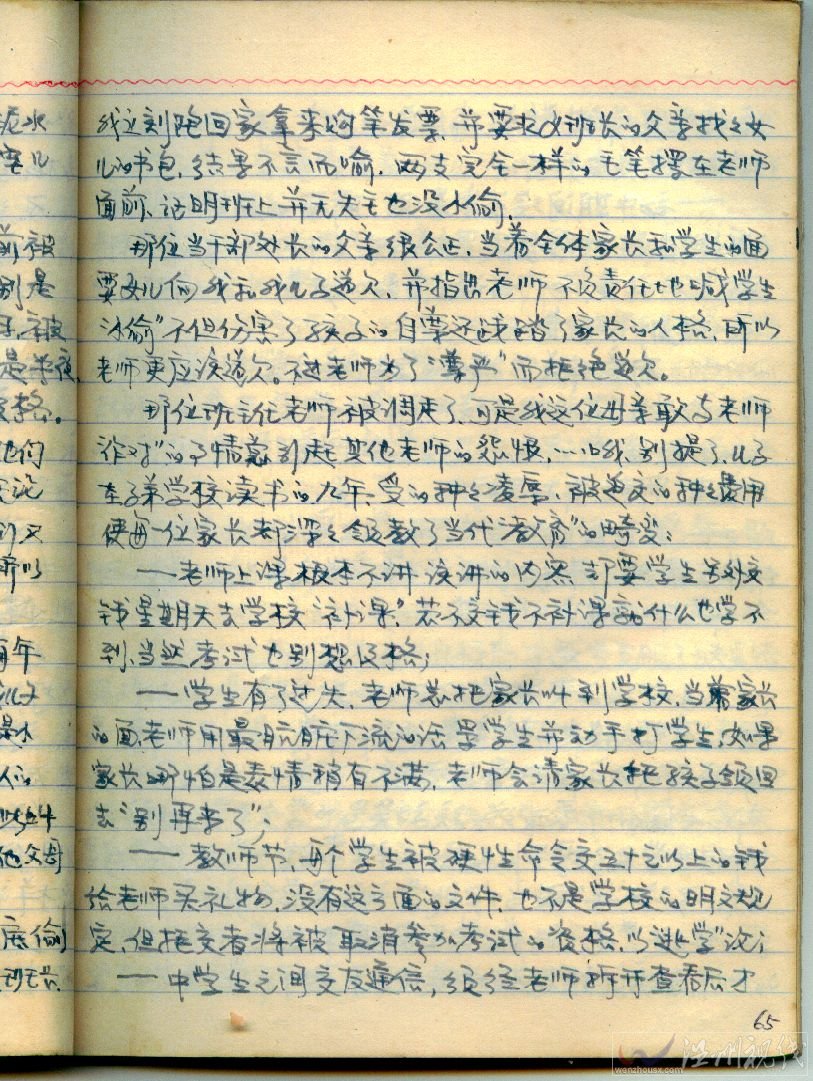 我立刻跑回家拿来购笔发票,并要求女班长的父亲找之女
儿的书包,结果不言而喻,两支完全一样的毛笔摆在老师
面前,证明班上并无失主也没小偷。
那位当干部处长的父亲很公正,当着全体家长和学生的面
要女儿向我和我儿子道欠,并指出老师不负责任地喊学生
“小偷”不但伤害了孩子的自尊还践踏了家长的人格,所以
老师更应该道欠。不过老师为了“尊严”而拒绝道欠。
那位班主任老师被调走了,可是我这位母亲敢与老师
“作对”的事情惹起其他老师的怨恨,……哦,别提了,儿子
在子弟学校读书的九年,受的种之凌辱,被迫交的种之费用
使每一位家长都深之领教了当代“教育”的畸变:
——老师上课根本不讲该讲的内容,却要学生另外交
钱星期天去学校“补课”,若不交钱不补课就什么也学不
到,当然考试也别想及格;
——学生有了过失,老师总把家长叫到学校,当着家长
的面,老师用最肮脏下流的话骂学生并动手打学生,如果
家长哪怕是表情稍有不满,老师会请家长把孩子领回
去“别再来了”;
——教师节,每个学生被硬性命令交五十元以上的钱
给老师买礼物,没有这方面的文件,也不是学校的明文规
定,但拒交者将被取消参加考试的资格,以“逃学”论;
——中学生之间交友通信,须经老师拆开查看后才
65
泥水
前被
别是
被
是半夜
格。
他们
又
所以
年
人的
他父母
偷
班长
温州视线
wenzhousx.com